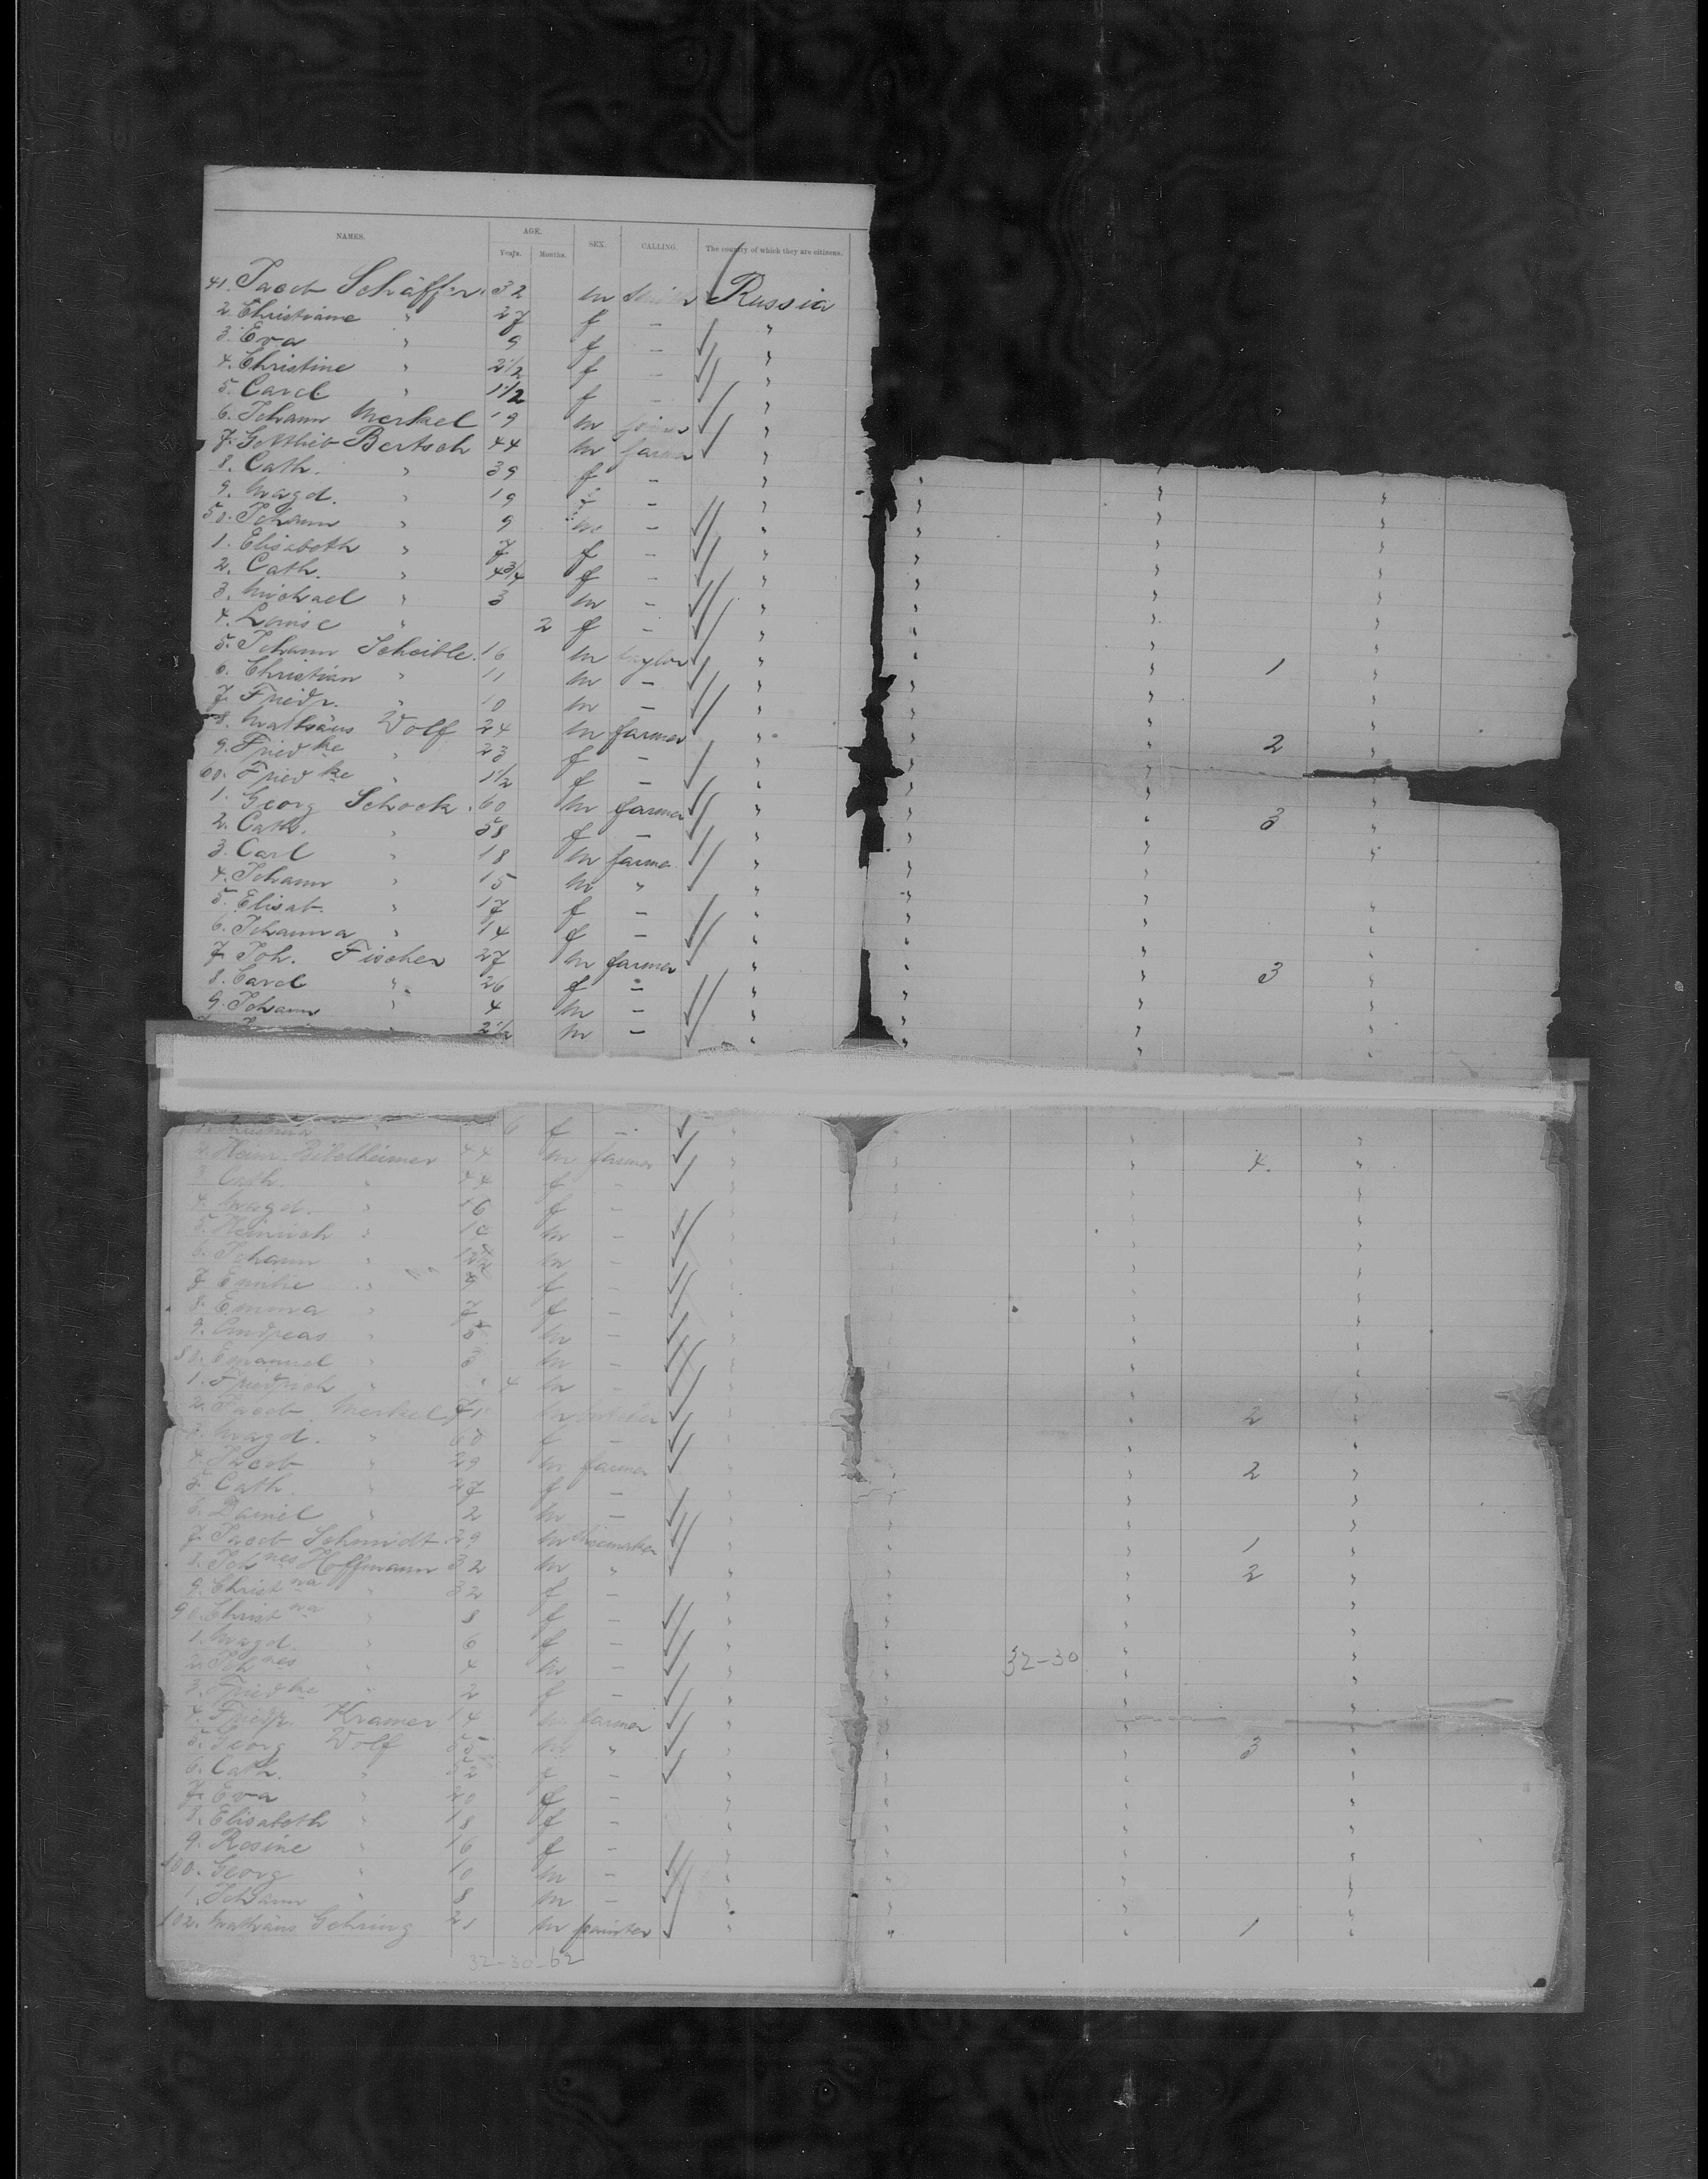 NAMES. AGE. SEX. CALLING. The country of which they are citizens.
Years. Months.
41. Jacob Schäffer. 32 m Russia
2. Christiane " 27 f - "
3. Eva " 9 f - "
4. Christine " 2 1/2 f - "
5. Carol. " 1 1/2 f - "
6. Johann Merkel 19 m "
7. Gottlieb Bertsch 44 m farmer "
8. Cath. " 39 f - "
9. Magd. " 19 f - "
50. Johann " 9 m - "
1. Elisabeth " 7 f - "
2. Cath. " 4 3/4 f - "
3. Michael " 3 m - "
4. Louise " 2 f - "
5. Johann Scheible. 16 m taylor " 1
6. Christian " 11 m - "
7. Friedr. " 10 m - "
8. Mathäus Wolf 24 m farmer " 2
9. Fried ke " 23 f - "
60. Fried ke " 1 1/2 f - "
1. Georg Schock. 60 m farmer " 3
2. Cath. " 58 f - "
3. Carl " 18 m farmer "
4. Johann " 15 m " "
5. Elisab. " 17 f - "
6. Johanna " 14 f - "
7. Joh. Fischer 27 m farmer " 3
8. Carol " 26 f - "
9. Johann " 4 m - "
" 2 1/2 m - "
6 f - "
2. Heinr. 44 m farmer " 4.
3. Cath. " 44 f - "
4. Magd. " 16 f - "
5. Heinrich " 14 m - "
6. Johann " m - "
7. Emilie " 9 f - "
8. Emma " 7 f - "
9. Andreas " 5 m - "
80. Emanuel " 3 m - "
1. Friedrich " " 4 m - "
2. Jacob Merkel m " 2
3. Magd. " 60 f - "
4. Jacob " 29 m farmer " 2
5. Cath. " 27 f - "
6. Daniel " 2 m - "
7. Jacob Schmidt. 29 m Shoemaker " 1
8. Joh nes Hoffmann 32 m " " 2
9. Christ na " 32 f - "
90. Christ na " 8 f - "
1. Magd. " 6 f - "
2. Joh nes " 4 m - " 32-30
3. Fried ke " 2 f - "
4. Friedr. Kramer 14 m farmer "
5. Georg Wolf 55 m " " 3
6. Cath. " 52 f - "
7. Eva " 20 f - "
8. Elisabeth " 18 f - "
9. Rosine " 16 f - "
100. Georg " 10 m - "
1. Johann " 8 m - "
102. Mathäus Gehring 21 m painter " 1
32-30-62